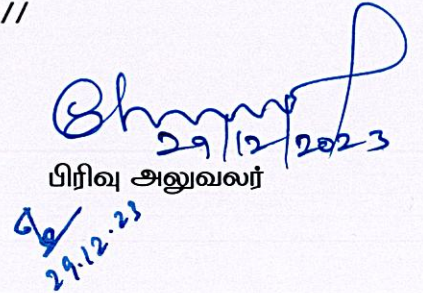 //
29/12/2023
பிரிவு அலுவலர்
29.12.23